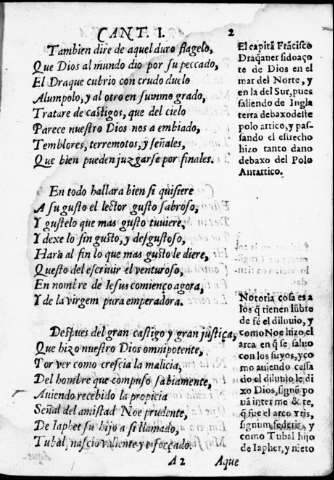 CANT. I. 2
Tambien dire de aquel duro flagelo,
Que Dios al mundo dio por su peccado,
El Draque cubrio con crudo duelo
Alumpolo, y al otro en summo grado,
Tratare de castigos, que del cielo
Parece nuestro Dios nos a embiado,
Temblores, terremotos, y señales,
Que bien pueden juzgarse por finales.
En todo hallara bien si quisiere
A su gusto el lector gusto sabroso,
Y gustelo que mas gusto tuviere,
Y dexe lo sin gusto, y desgustoso,
Hará al fin lo que mas gusto le diere,
Questo del escriuir el venturoso,
En nombre de Iesus comienço agora,
Y de la virgem pura emperadora.
Despues del gran castigo y gran justiça,
Que hizo nuestro Dios omnipotente,
Por ver como crescia la malicia,
Del hombre que compuso sabiamente,
Auiendo recebido la propicia
Señal del amistad Noe prudente,
De Iaphet su hijo a si llamado,
Tubal, nascio valiente y esforçado.
A 2 Aque
El capitā Frācisco
Draq̄aner sido aço
te de Dios en el
mar del Norte, y
en la del Sur, pues
saliendo de Ingla
terra debaxo del te
polo artico, y pas-
sando el estrecho
hizo tanto dano
debaxo del Polo
Antartico.
Notoria cosa es a
los q̄ tienen lūbre
de fé el diluuio, y
como Noe hizo, el
arca en q̄ se saluo
con los suyos, y co
mo auiendo cassa
do el diluuio le di
xo Dios, signū po
nā inter me & te,
q̄ fue el arco yris,
signum fęderis, y
como Tubal hijo
de Iaphet, y nieto